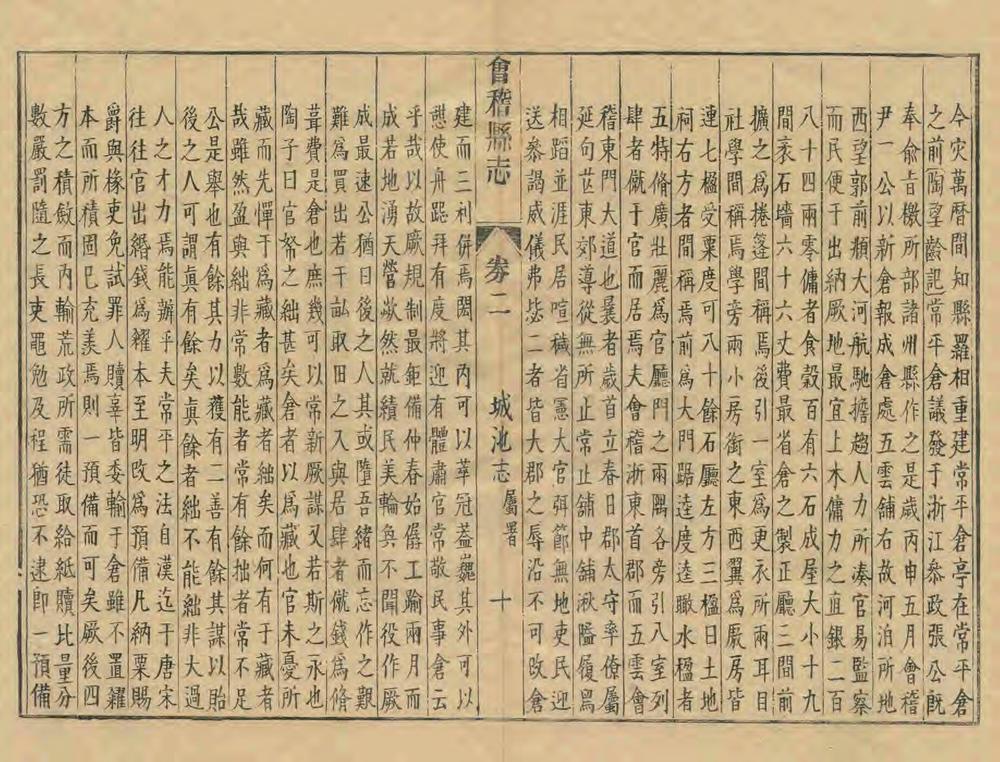 今灾萬曆間知縣羅相重建常平倉亭在常平倉
之前陶望齡記常平倉議發于浙江叅政張公旣
奉俞㫖檄所部諸州縣作之是歲丙申五月會稽
尹一公以新倉報成倉處五雲舖右故河泊所地
西望郭前頫大河航馳擔趨人力所凑官易監察
而民便于出納厥地最宜上木傭力之直銀二百
八十四兩零傭者食榖百有六石成屋大小十九
間袤石墻六十六丈費最省倉之製正廳二間前
擴之爲捲蓬間稱焉後引一室爲更衣所兩耳目
社學間稱焉學旁兩小房衖之東西翼爲厫房皆
連七楹受粟度可八十餘石廳左方三楹曰土地
祠右方者間稱焉前爲大門踞逵度逵瞰水楹者
五特脩廣壯麗爲官廳門之兩隅各旁引八室列
肆者僦于官而居焉夫會稽浙東首郡而五雲會
稽東門大道也曩者歲首立春日郡太守率僚屬
延句芒東郊導從無所止常止舖中舖湫隘履舄
相蹈並涯民居喧穢省憲大官弭節無地吏民迎
送叅謁威儀弗毖二者皆大郡之辱沿不可攺倉
會稽縣志 卷二 城池志 屬署 十
建而三利併焉閎其内可以萃冠葢巍其外可以
憇使舟跽拜有度將迎有體肅官常敬民事倉云
乎哉以故厥規制最鉅備仲春始僝工踰兩月而
成若地湧天營歘然就績民美輪奐不聞役作厥
成最速公猶曰後之人其或隳吾緒而忘作之艱
難爲買出若干畆取田之入與居肆者僦錢爲脩
葺費是倉也庶幾可以常新厥謀又若斯之永也
陶子曰官帑之絀甚矣倉者以爲藏也官未憂所
藏而先憚于爲藏者爲藏者絀矣而何有于藏者
哉雖然盈與絀非常數能者常有餘拙者常不足
公是舉也有餘其力以獲有二善有餘其謀以貽
後之人可謂眞有餘矣眞餘者絀不能絀非大過
人之才力焉能辦乎夫常平之法自漢迄于唐宋
往往官出緡錢爲糴本至明攺爲預備凡納粟賜
爵與椽吏免試罪人贖辜皆委輸于倉雖不置糴
本而所積固巳充羨焉則一預備而可矣厥後四
方之積斂而内輸荒政所需徒取給紙贖比量分
數嚴罰隨之長吏黽勉及程猶恐不逮卽一預備